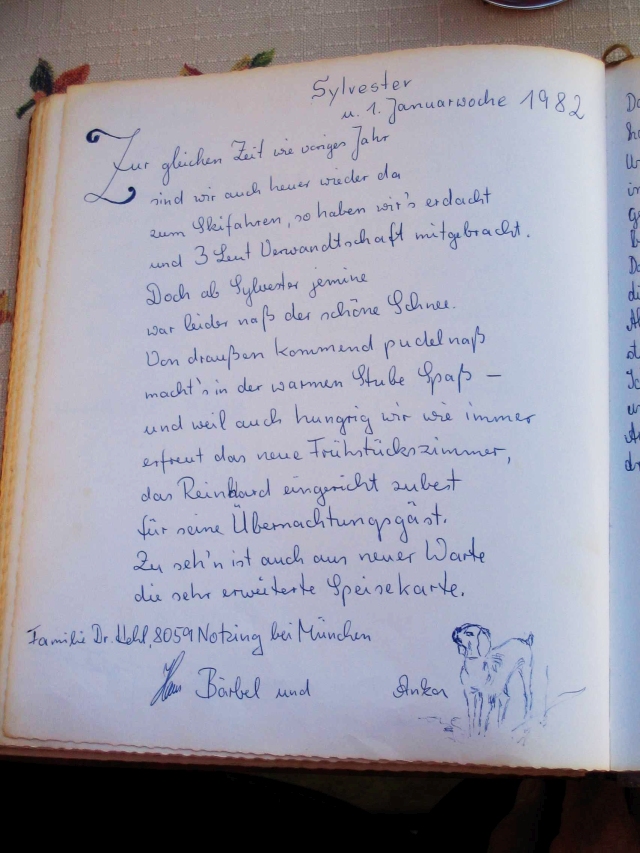 Sylvester
u. 1. Januarwoche 1982
Zur gleichen Zeit wie voriges Jahr
sind wir auch heuer wieder da
zum Skifahren, so haben wir's erdacht
und 3 Leut Verwandtschaft mitgebracht.
Doch ab Sylvester jemine
war leider naß der schöne Schnee.
Von draußen kommend pudelnaß
macht's in der warmen Stube Spaß –
und weil auch hungrig wir wie immer
erfreut das neue Frühstückszimmer,
das Reinhard eingericht zubest
für seine Übernachtungsgäst.
Zu seh'n ist auch aus neuer Warte
die sehr erweiterte Speisekarte.
Familie Dr. 8059 Notzing bei München
Hans Bärbel und Anka